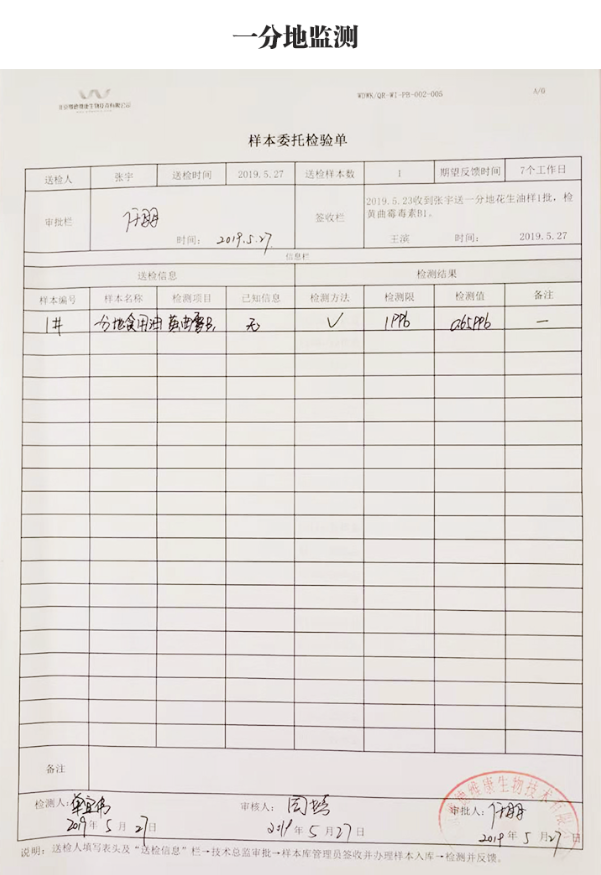 一分地监测
WDWK/QR-WI-PB-002-005 A/0
样本委托检验单
送检人 张宇 送检时间 2019.5.27 送检样本数 1 期望反馈时间 7个工作日
审批栏 时间: 2019.5.27 签收栏
2019.5.23收到张宇送一分地花生油样1批,检
黄曲霉毒素B1。
王滨 时间: 2019.5.27
信息栏
送检信息 检测结果
样本编号 样本名称 检测项目 已知信息 检测方法 检测限 检测值 备注
1# 分地食用油 黄曲霉B1 无 √ 1PPb 0.65PPb —
备注
检测人: 审核人: 审批人:
2019年5月27日 2019年5月27日 2019年5月27日
说明:送检人填写表头及“送检信息”栏→技术总监审批→样本库管理员签收并办理样本入库→检测并反馈。